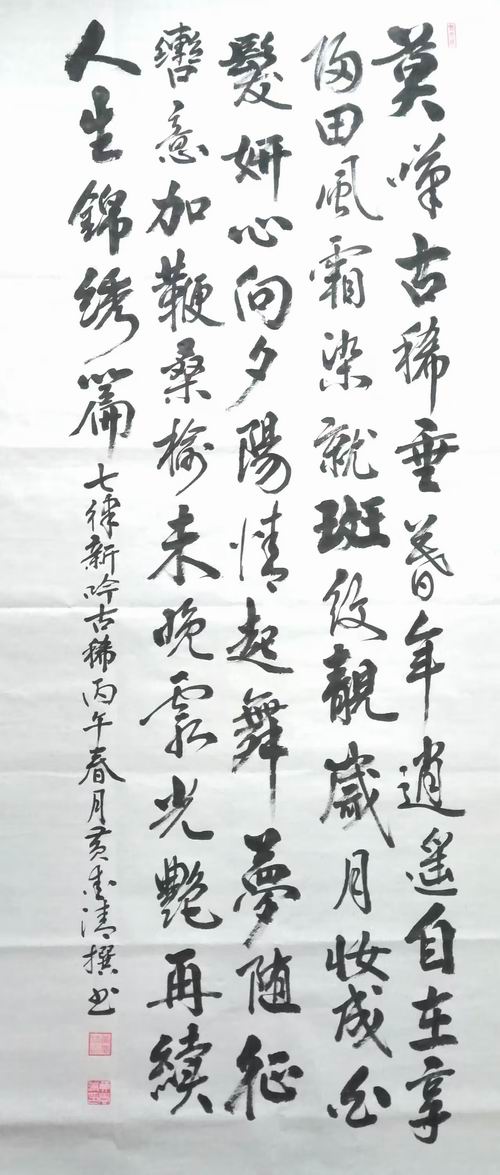 莫嘆古稀垂暮年逍遥自在享
福田風霜染就斑紋靚歲月妝成白
髮妍心向夕陽情起舞夢随征
轡意加鞭桑榆未晚霞光艷再續
人生錦綉篇
七律新吟古稀丙午春月黄清撰书